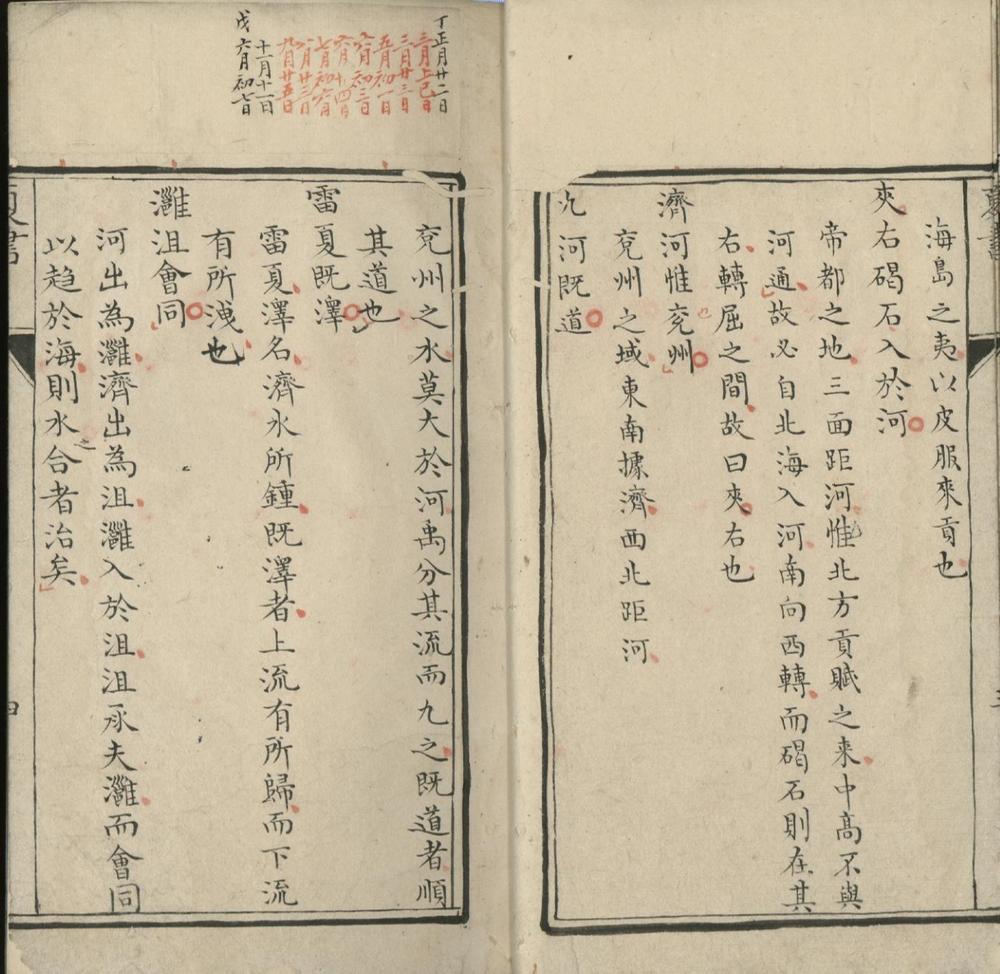 海島之夷以皮服來貢也
夾右碣石入於河
帝都之地三面距河惟北方貢賦之來中高不與
河通故必自北海入河南向西轉而碣石則在其
右轉屈之間故曰夾右也
濟河惟兗州
兗州之域東南據濟西北距河
九河既道
丁正月廿二日
三月上巳日
三月廿三日
五月初一日
六月初三日
六月十四日
七月初六日
八月廿三日
九月廿五日
十一月十一日
戊六月初七日
兗州之水莫大於河禹分其流而九之既道者順
其道也
雷夏既澤
雷夏澤名濟水所鍾既澤者上流有所歸而下流
有所洩也
灉沮會同
河出為灉濟出為沮灉入於沮沮承夫灉而會同
以趋於海則水之合者治矣
四